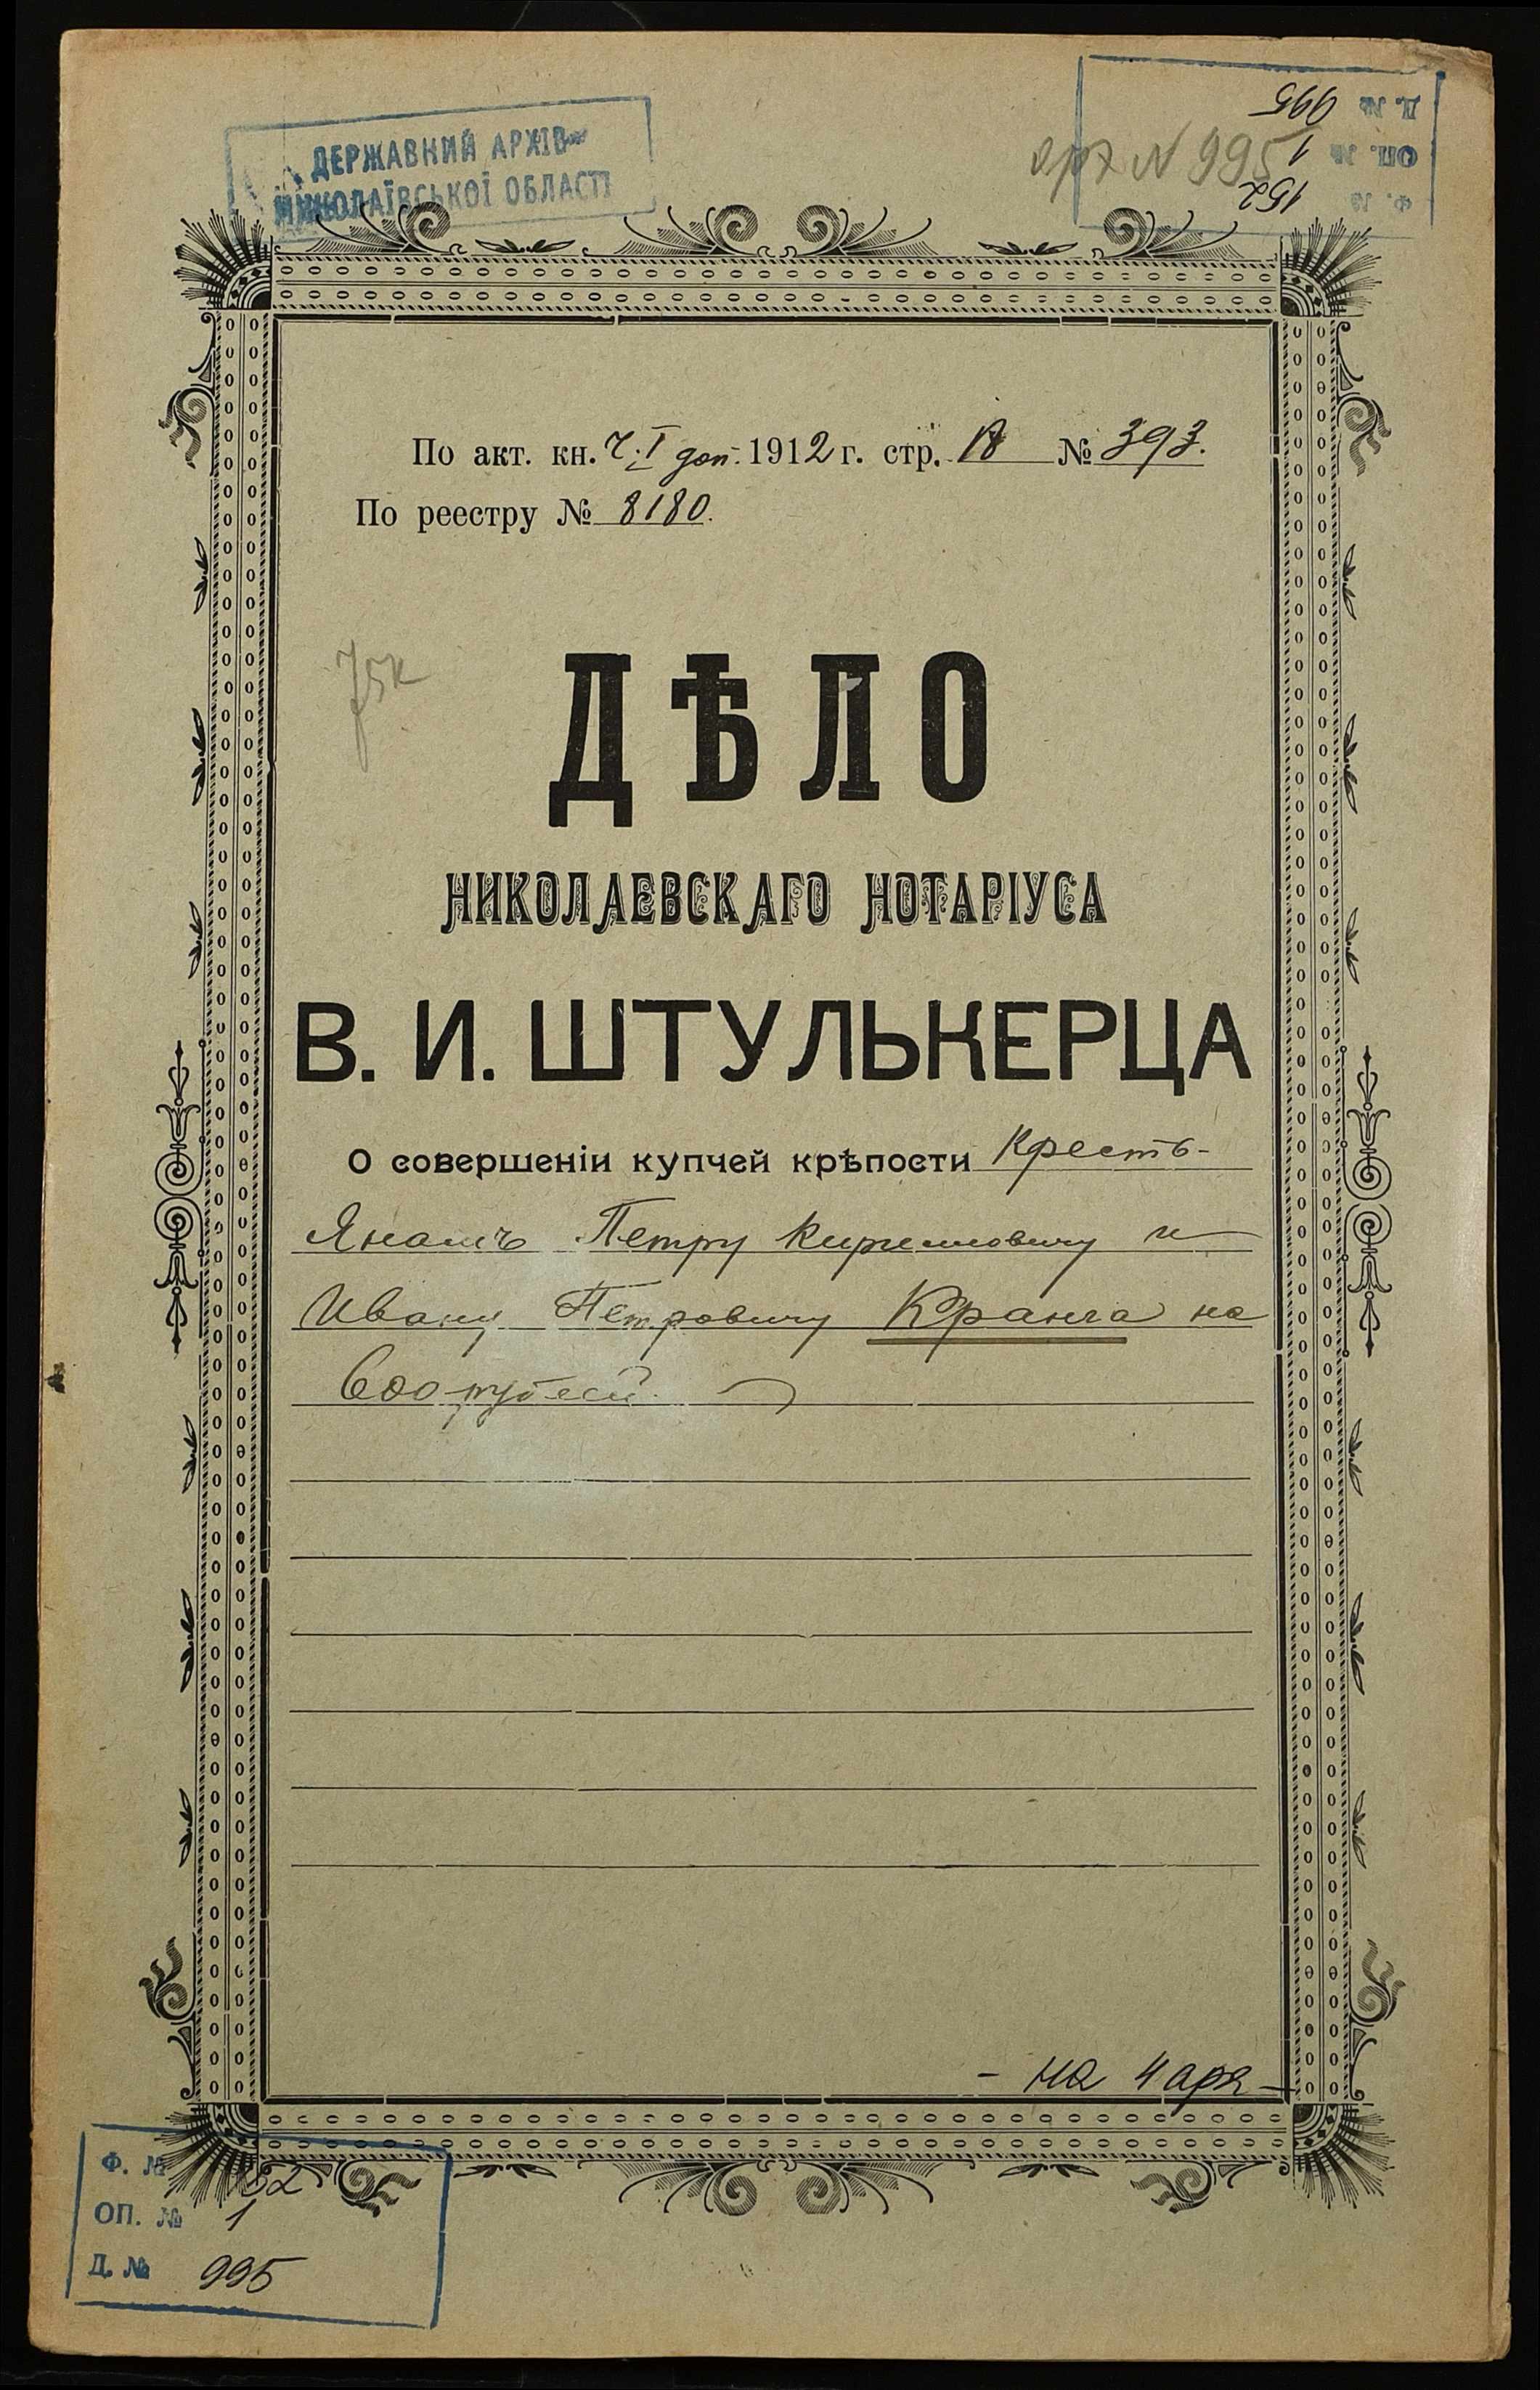 ДЕРЖАВНИЙ АРХІВ
МИКОЛАЇВСЬКОЇ ОБЛАСТІ
Ф. № 152
ОП. № 1
Д. № 995
арх N 995
По акт. кн. ч. I доп. 1912 г. стр. 18 № 393.
По реестру № 8180.
ДѢЛО
НИКОЛАЕВСКАГО НОТАРІУСА
В. И. ШТУЛЬКЕРЦА
О совершеніи купчей крѣпости Кресть-
янамъ Петру Кирилловичу и
Ивану Петровичу Кранга на
600 рублей.
- на 4 арк -
Ф. № 152
ОП. № 1
Д. № 995